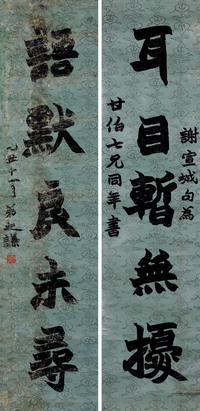 謝宣城句為
耳目暫無擾
甘伯七兄同年書
語默良未尋
乙丑十一月弟之謙